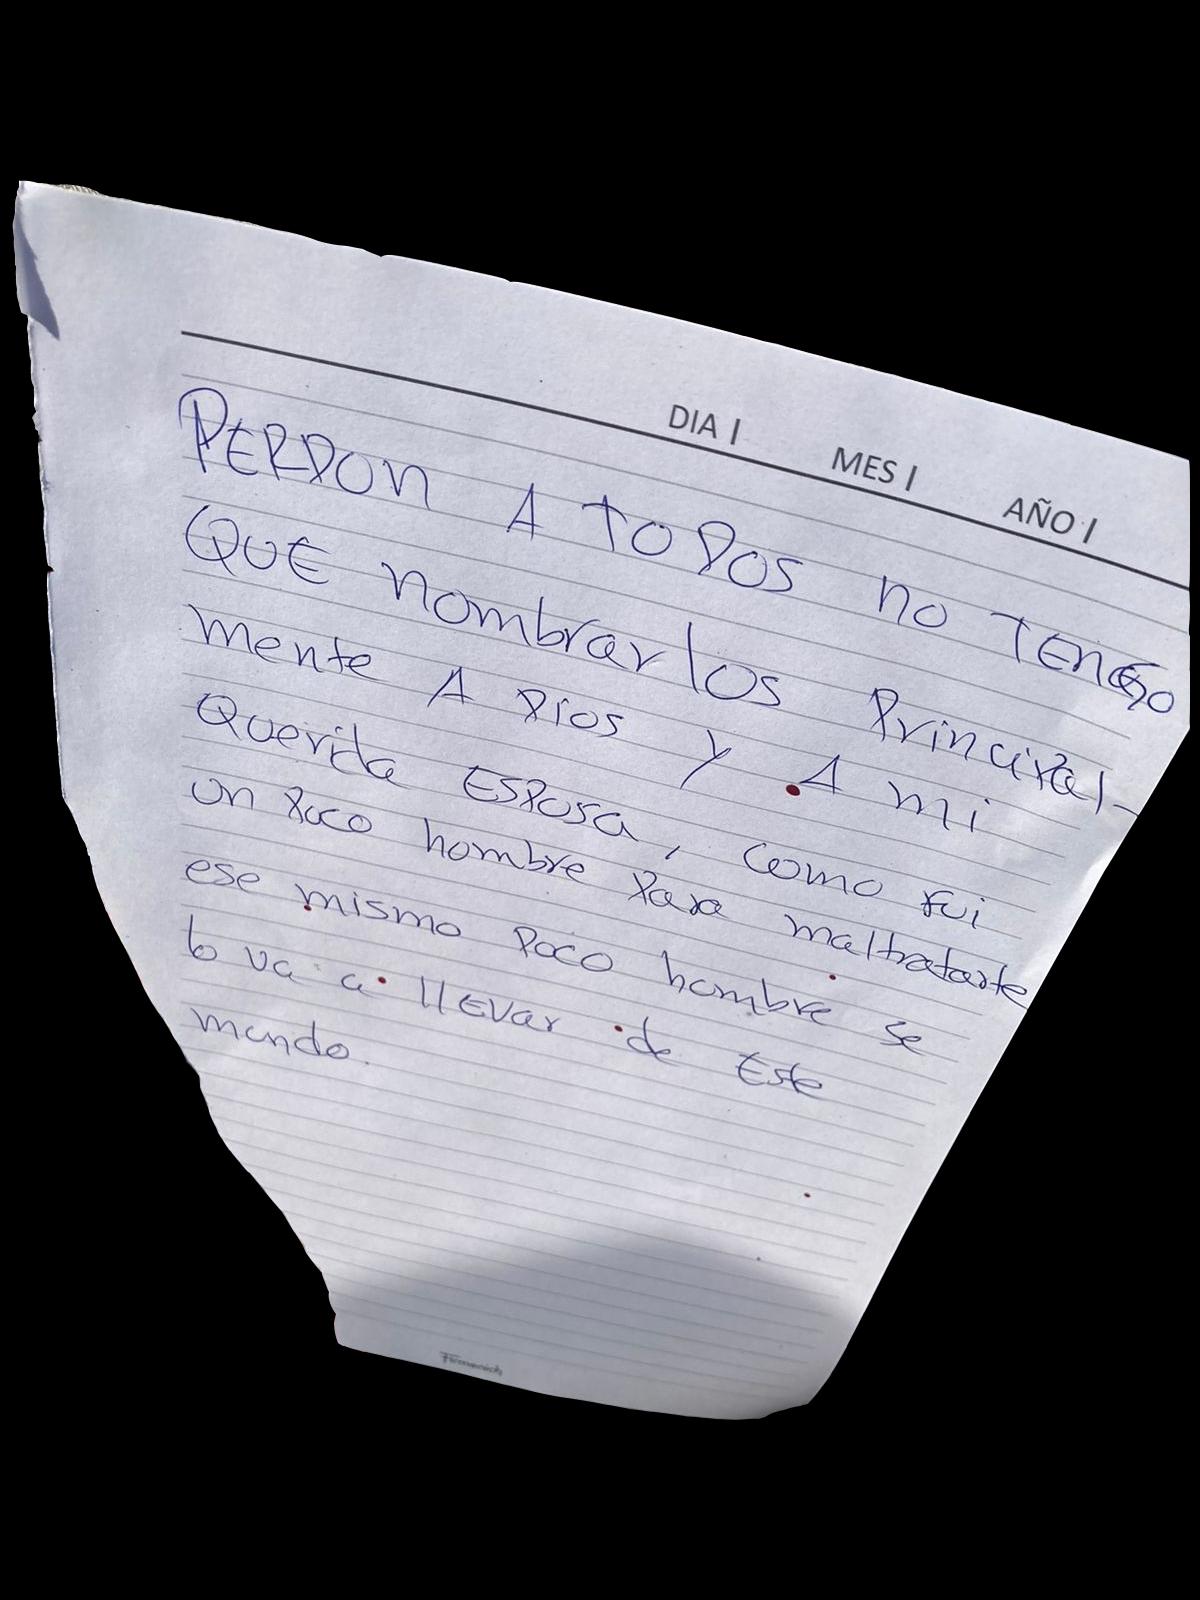 DIA | MES | AÑO |
PERDON A TODOS no TENGO
QUE nombrarlos Principal-
mente A DIOS y A mi
Querida ESPOSA, como fui
un Poco hombre Para maltratarte
ese mismo Poco hombre se
lo va a llEvar de Este
mundo.